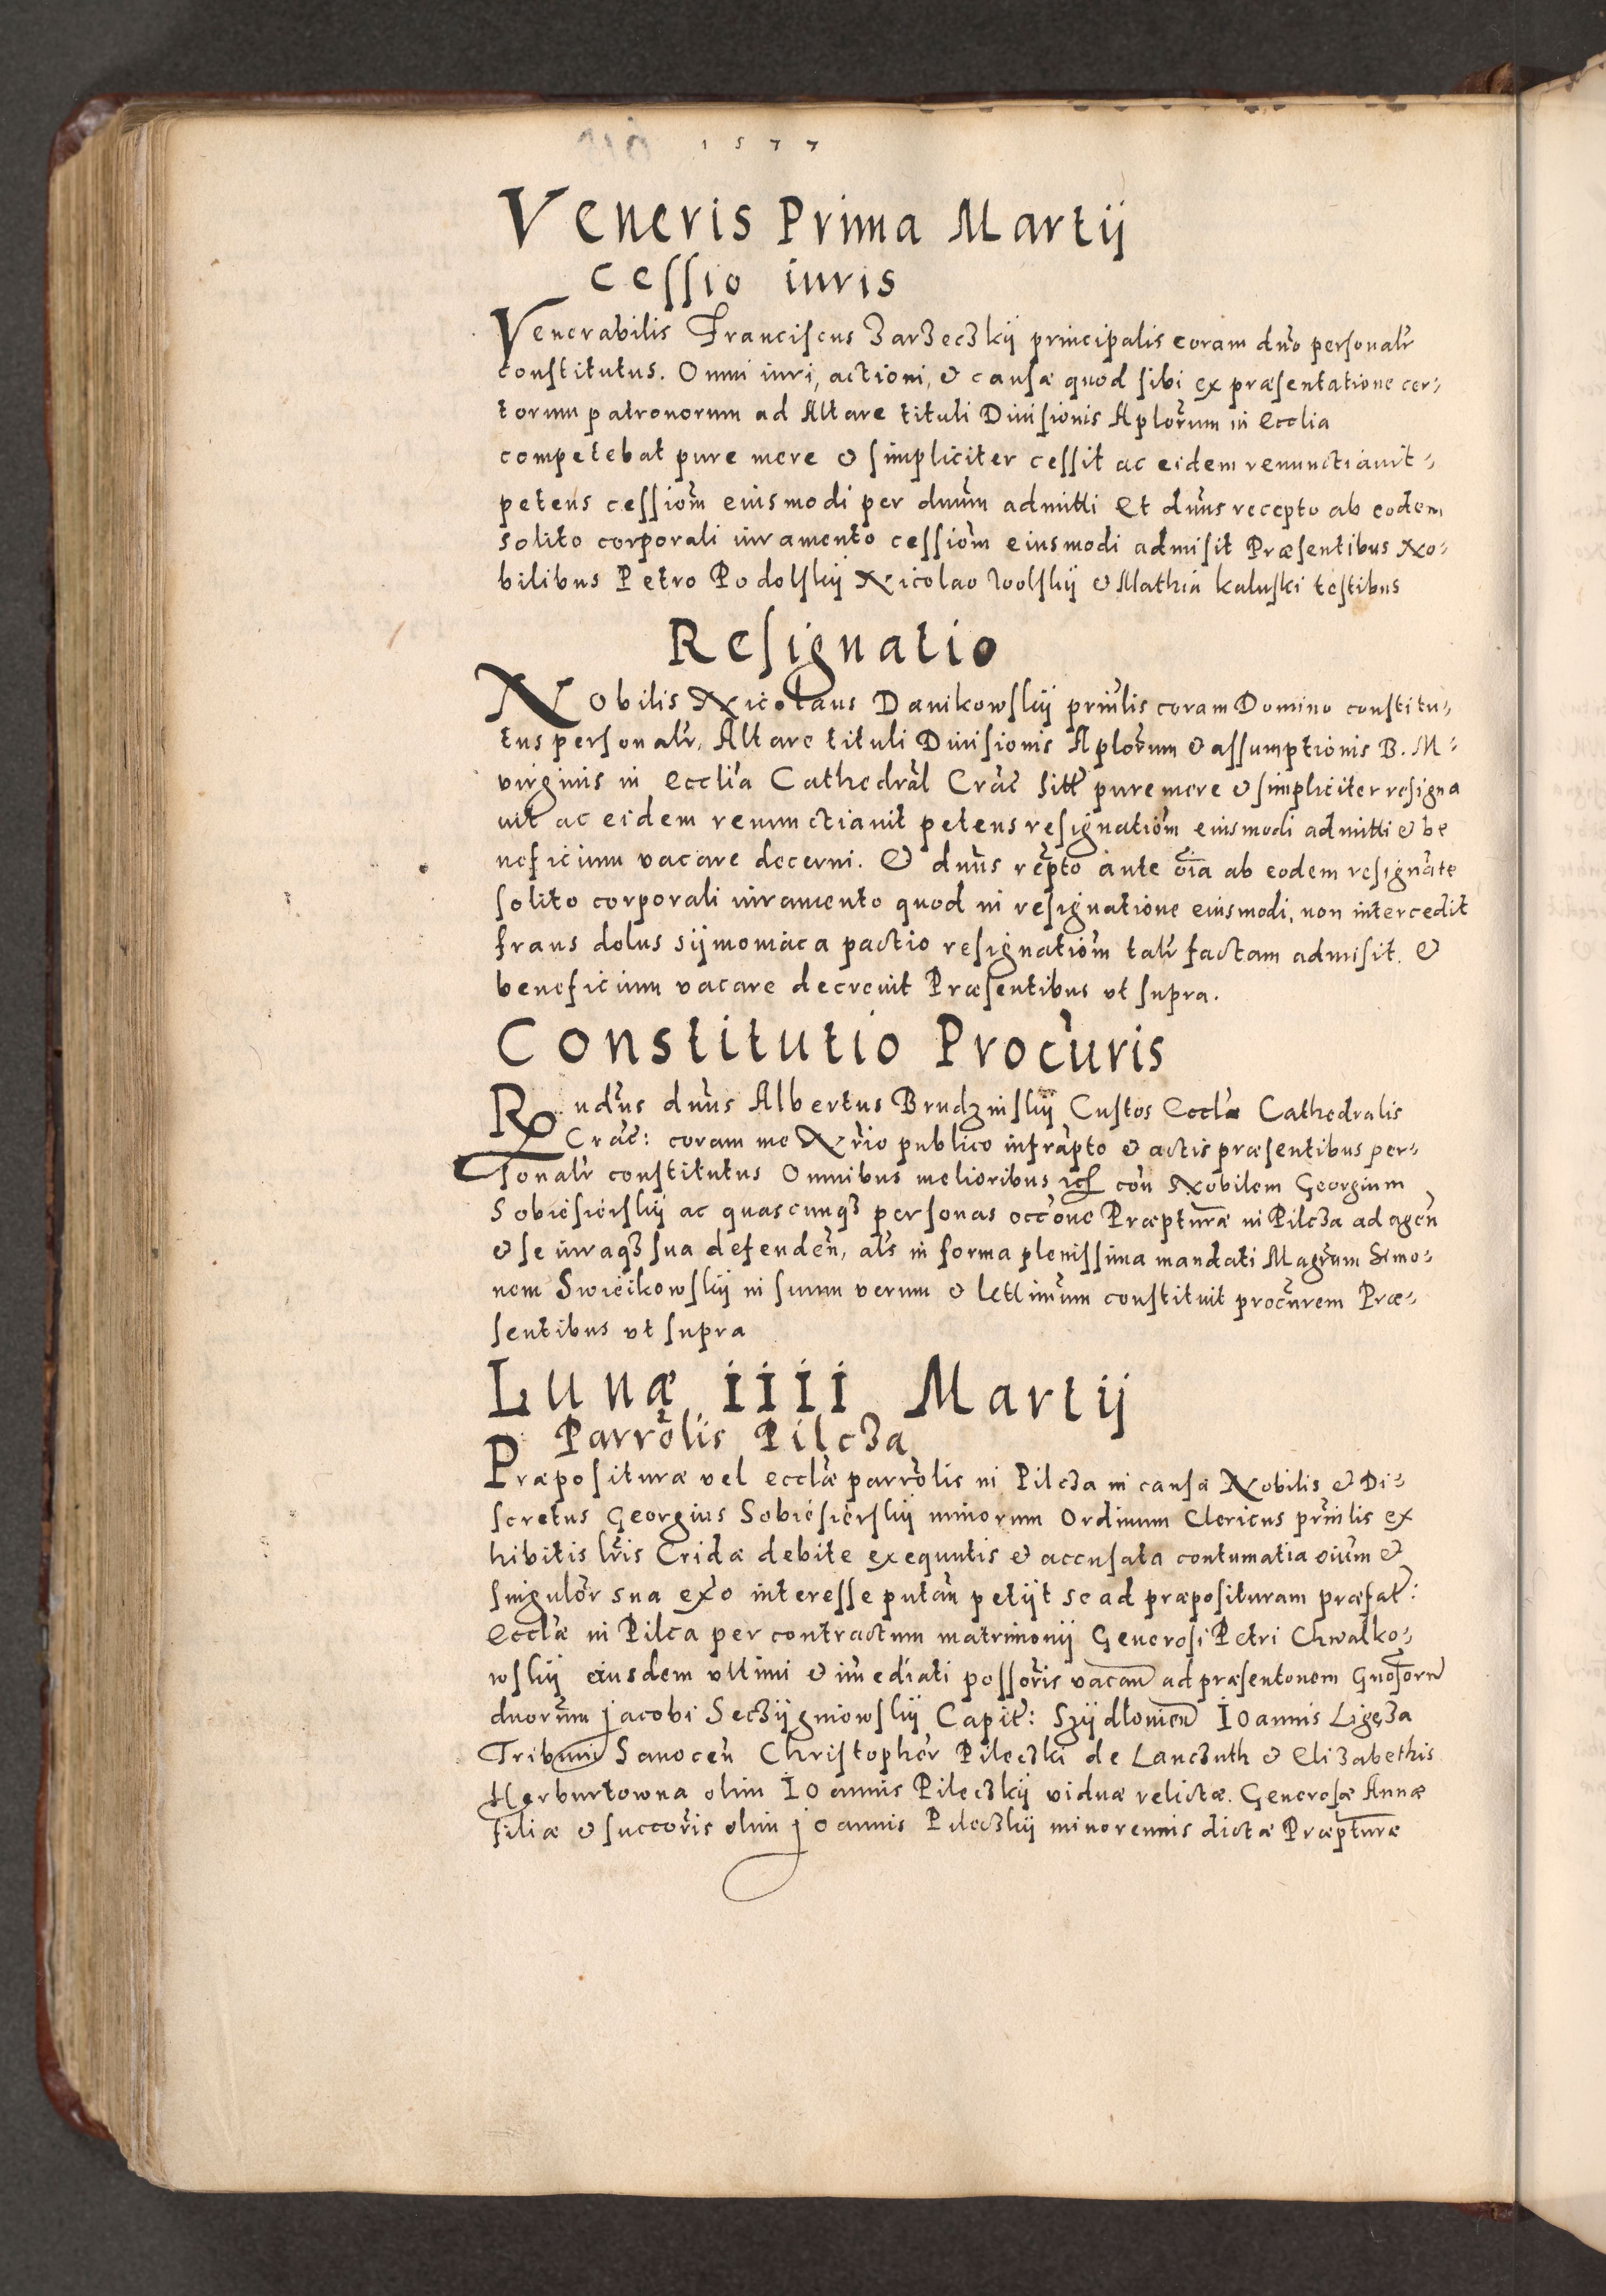 1577
Veneris Prima Martij
cessio iuris
Venerabilis Franciscus Zarzeczkij principalis coram dno personalr
constitutus. Omni iuri, actioni, & causæ quod sibi ex præsentatione cer-
torum patronorum ad Altare tituli Diuisionis Aplorum in Ecclia
competebat pure mere & simpliciter cessit ac eidem renunctiauit-
petens cessiom eiusmodi per dnum admitti Et dnus recepto ab eodem
solito corporali iuramento cessiom eiusmodi admisit Præsentibus No-
bilibus Petro Podolskij Nicolao Wolskij & Mathia kaluski testibus
Resignatio
Nobilis Nicolaus Danikowskij prinlis coram Domino constitu-
tus personalr, Altare tituli Diuisionis Aplorum & assumptionis B. M-
virginis in Ecclia Cathedral Crac sitt pure mere & simpliciter resigna
uit ac eidem renunctiauit petens resignatiom eiusmodi admitti & be
neficium vacare decerni. & dnus repto ante oia ab eodem resignate
solito corporali iuramento quod in resignatione eiusmodi, non intercedit
fraus dolus sijmoniaca pactio resignatiom talr factam admisit. &
beneficium vacare decreuit Præsentibus vt supra.
Constitutio Procuris
Rndus dnus Albertus Brudzinskij Custos Eccle Cathedralis
Crac: coram me Nrio publico infrapto & actis præsentibus per-
sonalr constitutus Omnibus melioribus con Nobilem Georgium
Sobiesierskij ac quascunqz personas occone Præpturæ in Pilcza ad agen
& se iuraqz sua defenden, als in forma plenissima mandati Magrum Simo-
nem Swieikowskij in suum verum & lettimum constituit procurem Præ-
sentibus vt supra
Lunæ iiii Martij
Parrolis Pilcza
Præposituræ vel ecclæ parrolis in Pilcza in causa Nobilis & Di-
scretus Georgius Sobiesierskij minorum Ordinum Clericus prinlis ex
hibitis lris Cridæ debite exequutis & accusata contumatia oium &
singulor sua exo interesse putan petijt se ad præposituram præfat:
Ecclæ in Pilca per contractum matrimonij Generosi Petri Chwalko-
wskij eiusdem vltimi & imediati possoris vacan ad præsentonem Gnosorum
dnorum jacobi Seczijgniowskij Capit: Szijdlonien Ioannis Ligęza
Tribuni Sanocen Christopher Pileczki de Lanczuth & Elizabethis
Herburtowna olim Ioannis Pileczkij viduæ relictæ. Generosæ Annæ
filiæ & succoris olim joannis Pileczkij minorennis dictæ Præpturæ